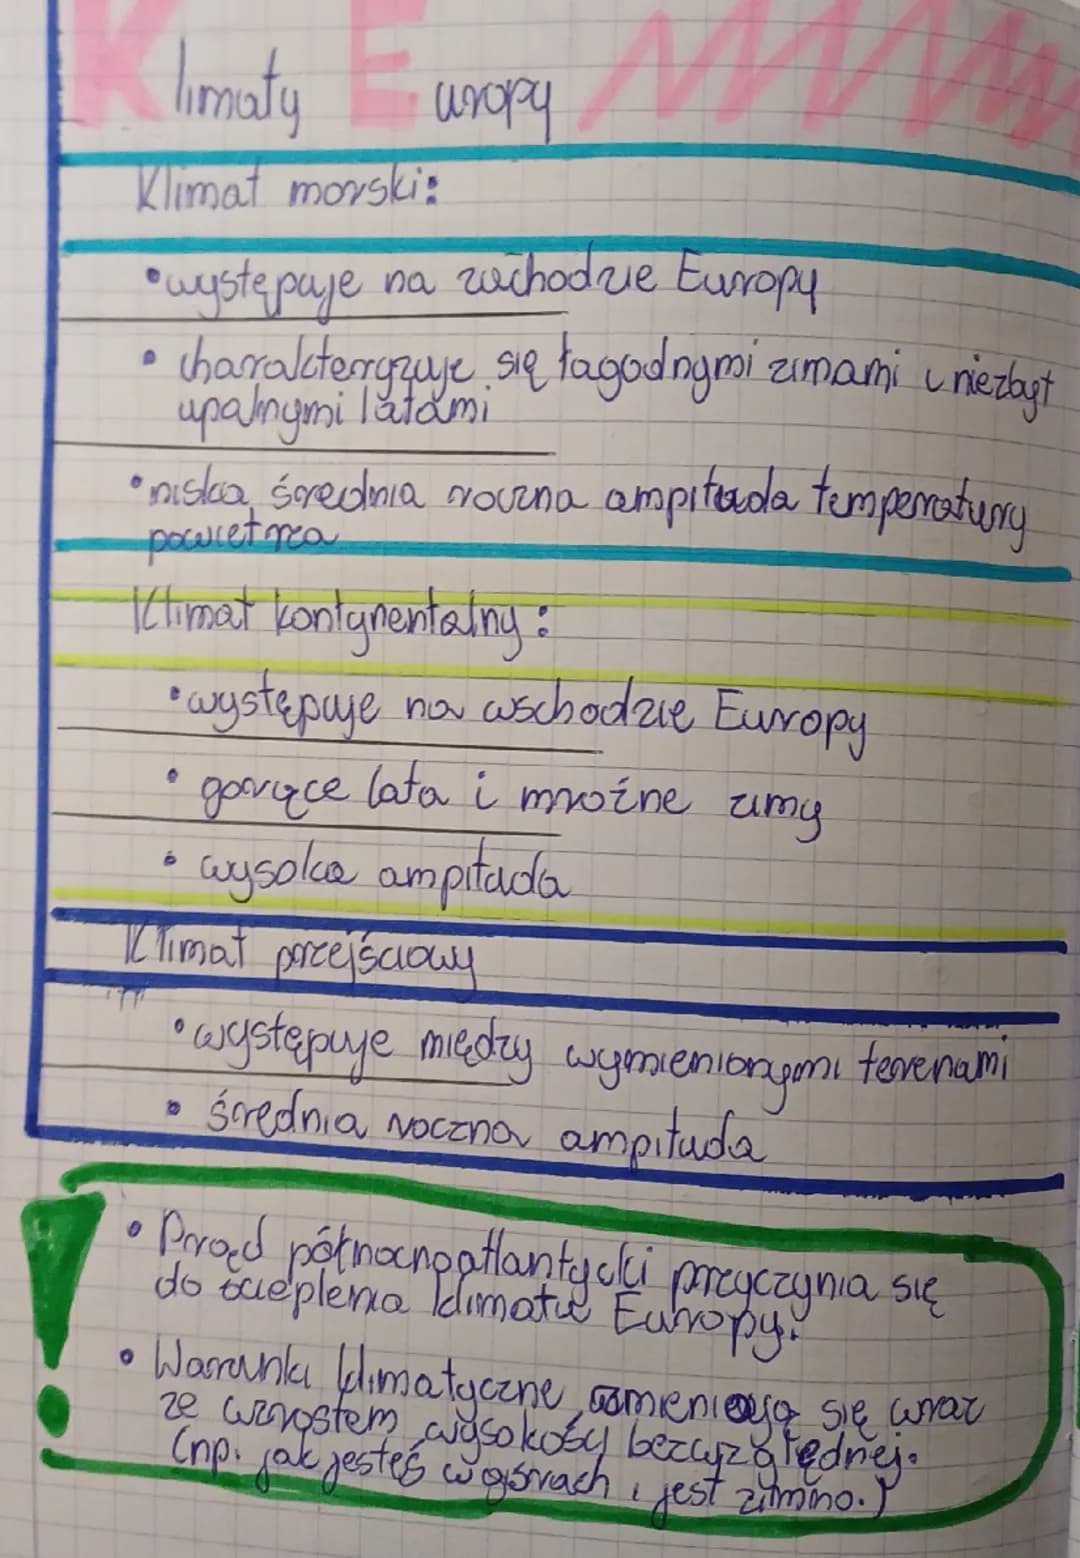 Klimaty Europy
Klimat morski:
•występuje na zachodzie Europy
• charakteryzuje się łagodnymi zimami i niezbyt
upalnymi latami
•niska średnia roczna ampituda temperatury
powietrza
Klimat kontynentalny:
•występuje na wschodzie Europy
• gorące lata i mroźne zimy
• wysoka ampituda
Klimat przejściowy
•występuje między wymienionymi terenami
• średnia roczna ampituda
• Prąd północnoatlantycki przyczynia się
do ocieplenia klimatu Europy.
• Warunki klimatyczne zmieniają się wraz
ze wzrostem wysokości bezwzględnej.
(np. jak jesteś w górach, jest zimno.)